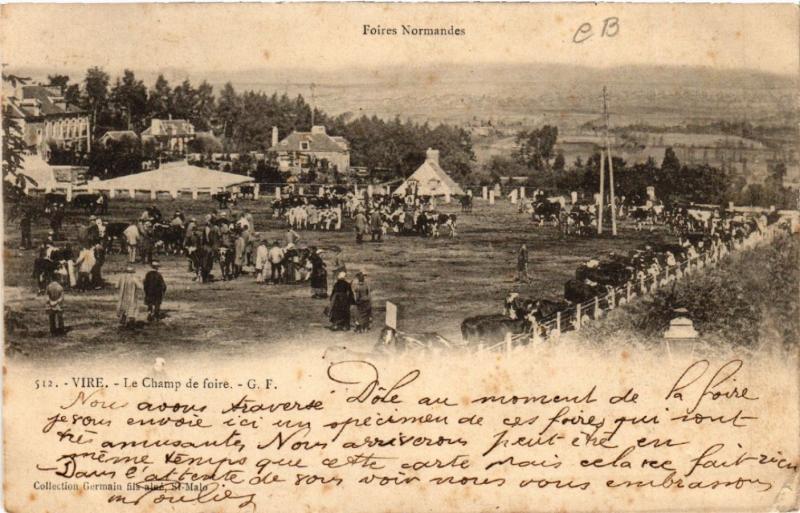 Foires Normandes
CB
512. - VIRE. - Le Champ de foire. - G. F.
Nous avons traversé Dôle au moment de la foire
je vous envoie ici un spécimen de ces foires qui sont
très amusantes, Nous arriverons peut être en
même temps que cette carte Mais cela ne fait rien
Dans l'attente de vous voir nous vous embrassons
Collection Germain fils aîné, St-Malo